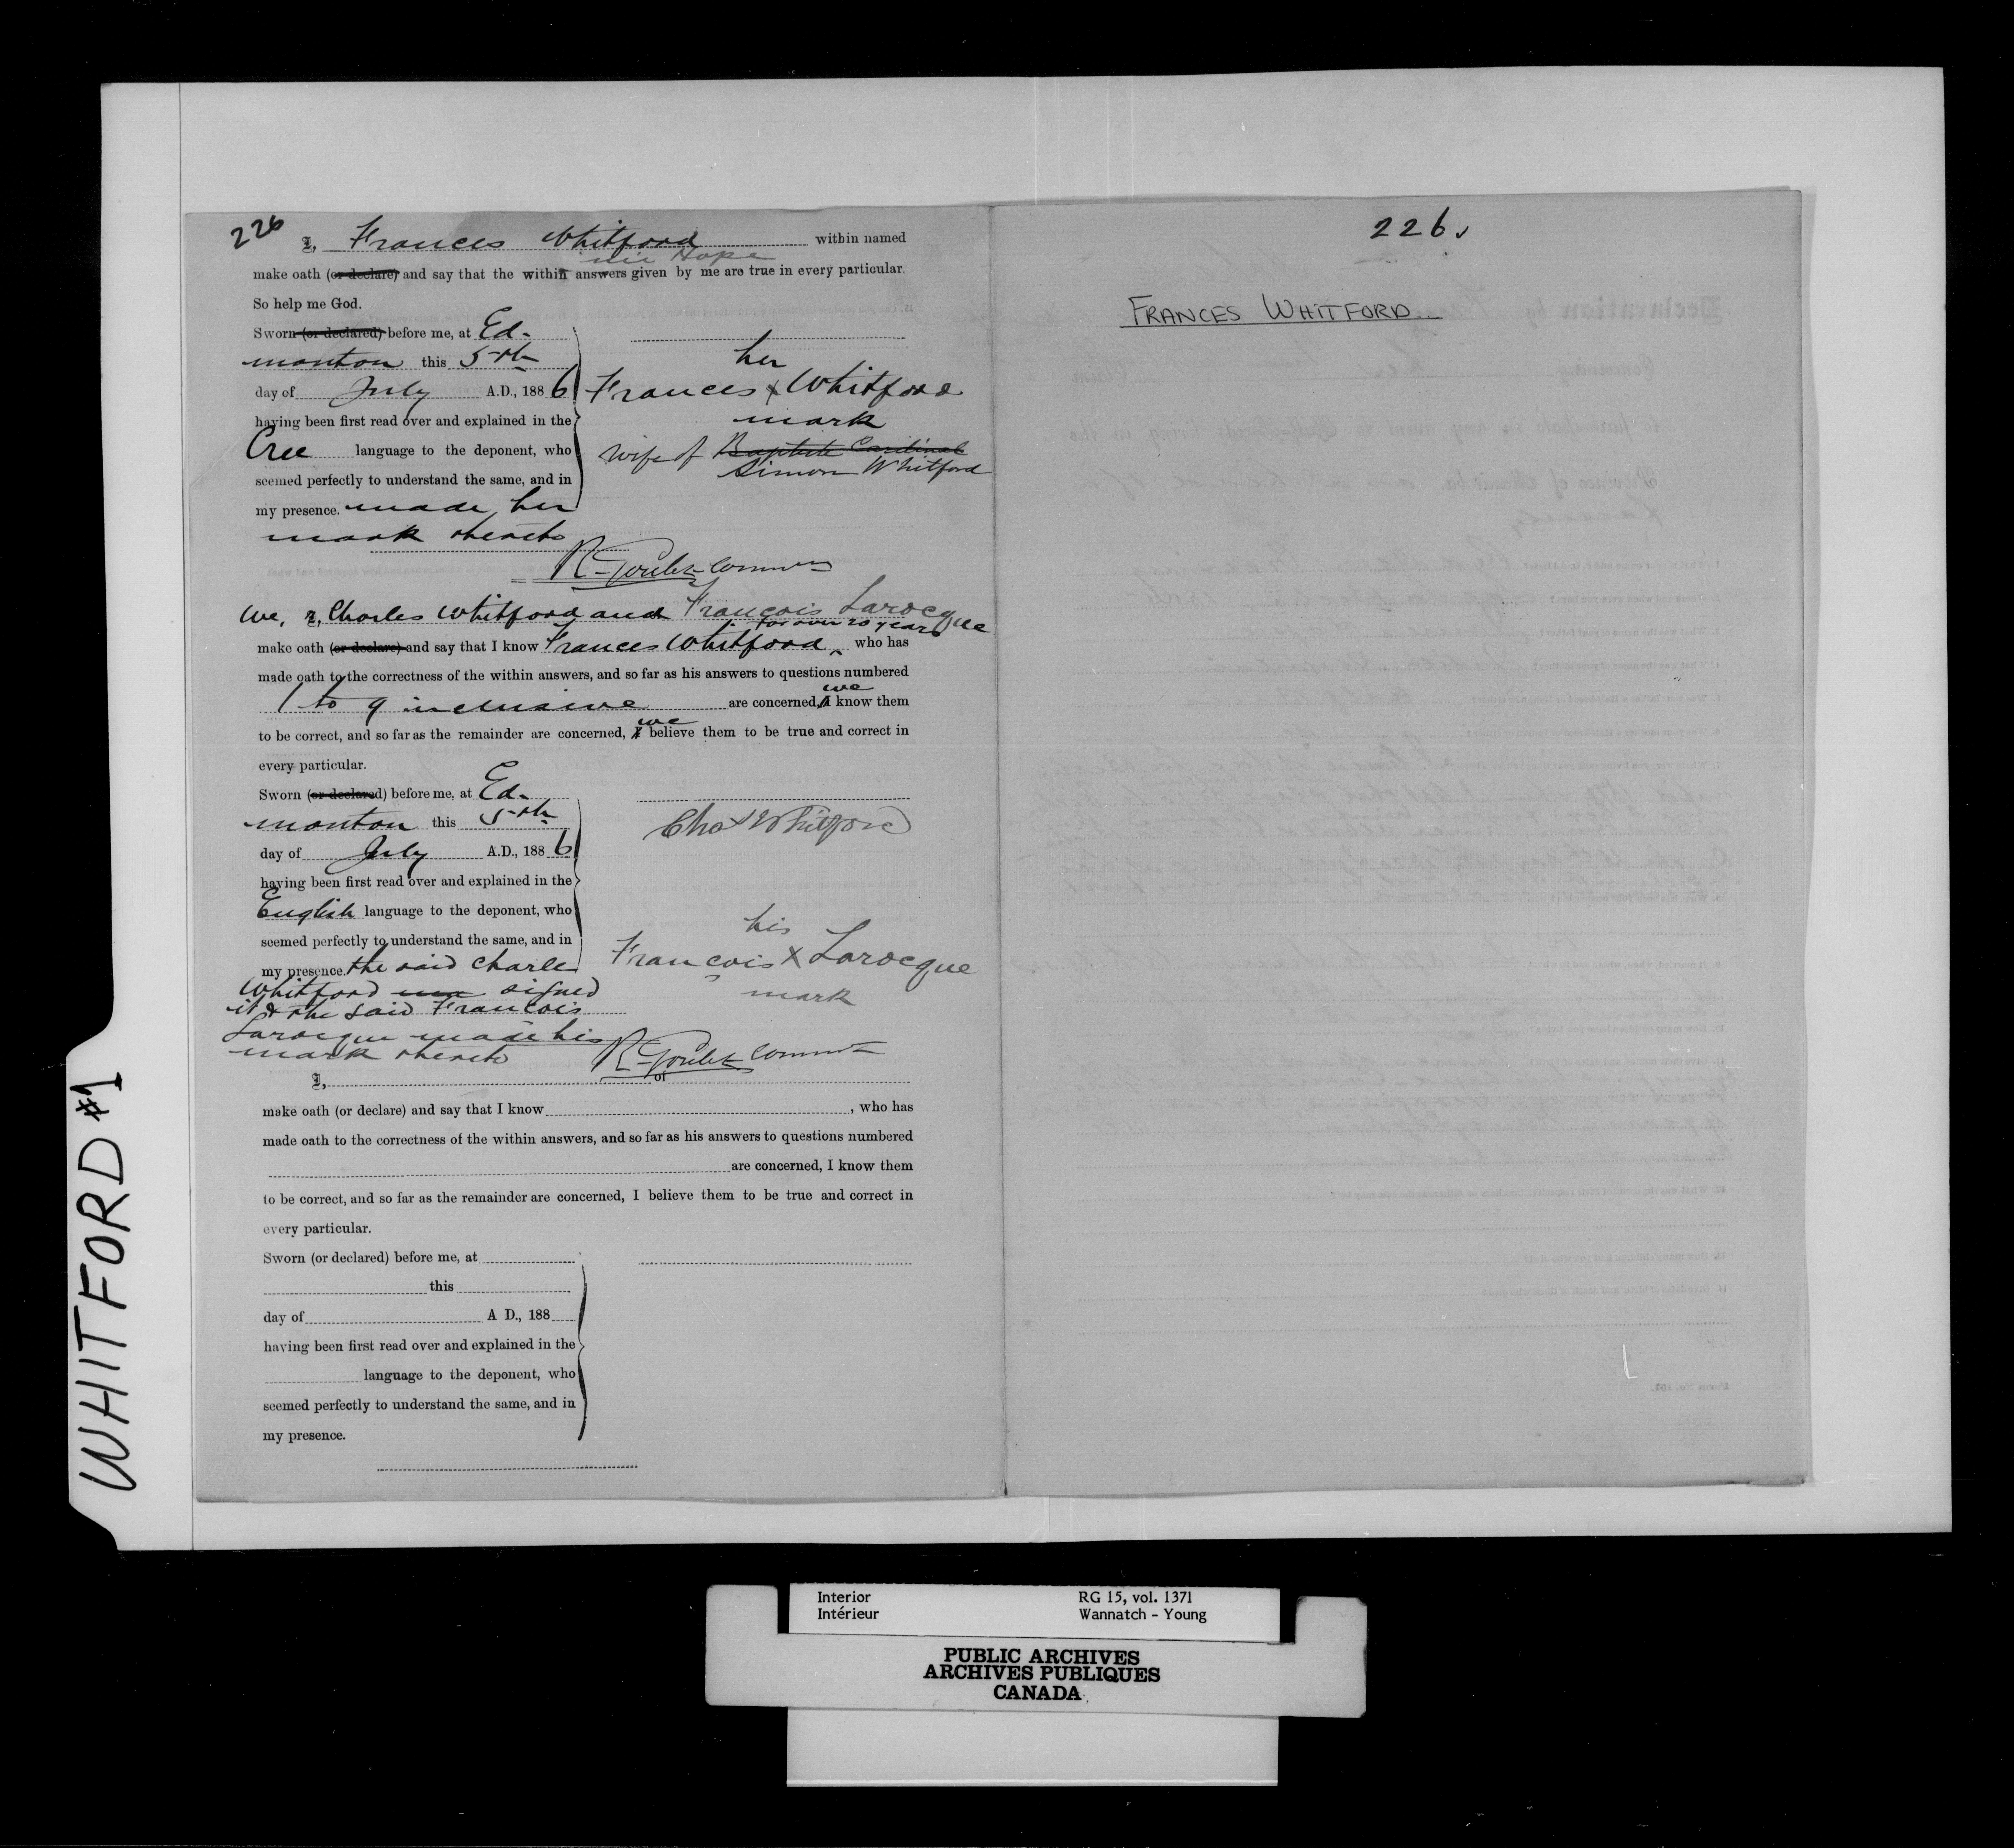 226
I, Frances Whitford within named
née Hope
make oath (or declare) and say that the within answers given by me are true in every particular.
So help me God.
Sworn (or declared) before me, at Ed-
monton this 5th
day of July A.D., 1886
having been first read over and explained in the
Cree language to the deponent, who
seemed perfectly to understand the same, and in
my presence. made her
mark thereto
her
Frances x Whitford
mark
wife of Baptiste Cardinal
Simon Whitford
R Goulet Commr
We, I, Charles Whitford and François Larocque
for over 20 years
make oath (or declare) and say that I know Frances Whitford, who has
made oath to the correctness of the within answers, and so far as his answers to questions numbered
we
1 to 9 inclusive are concerned, I know them
we
to be correct, and so far as the remainder are concerned, I believe them to be true and correct in
every particular.
Sworn (or declared) before me, at Ed-
monton this 5th
day of July A.D., 1886
having been first read over and explained in the
English language to the deponent, who
seemed perfectly to understand the same, and in
my presence. the said Charles
Whitford signed
it & the said Francois
Larocque made his
mark thereto
Chas Whitford
his
François X Larocque
mark
R Goulet Commr
I, of
make oath (or declare) and say that I know , who has
made oath to the correctness of the within answers, and so far as his answers to questions numbered
are concerned, I know them
to be correct, and so far as the remainder are concerned, I believe them to be true and correct in
every particular.
Sworn (or declared) before me, at
this
day of A D., 188
having been first read over and explained in the
language to the deponent, who
seemed perfectly to understand the same, and in
my presence.
226
FRANCES WHITFORD
WHITFORD #1
Interior RG 15, vol. 1371
Intérieur Wannatch - Young
PUBLIC ARCHIVES
ARCHIVES PUBLIQUES
CANADA